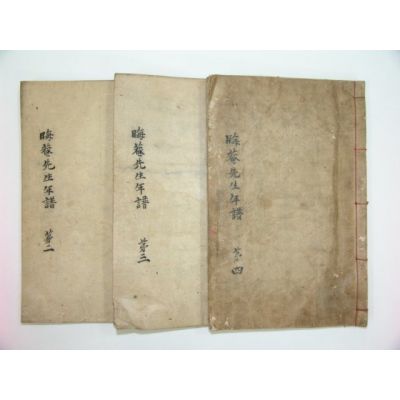 晦菴先生年譜 第四
晦菴先生年譜 第三
晦菴先生年譜 第二